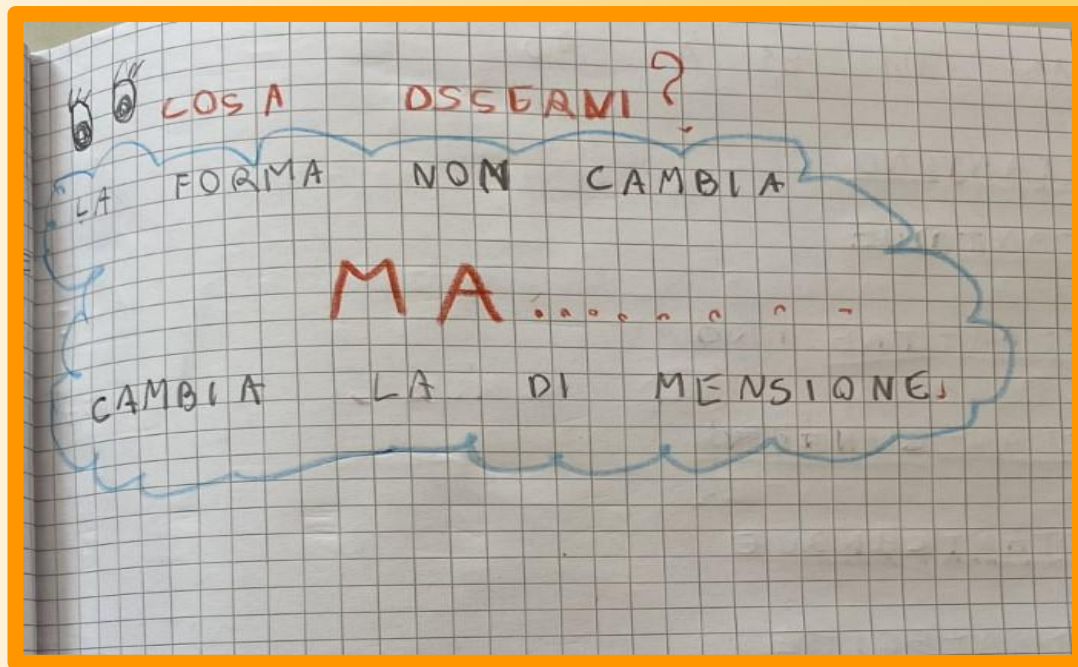 COSA OSSERVI?
LA FORMA NON CAMBIA
MA.........
CAMBIA LA DI MENSIONE.